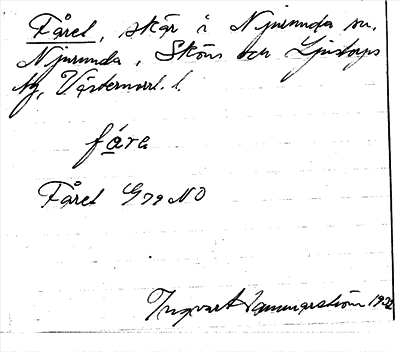 Fåret, skär i Njurunda sn,
Njurunda, Sköns och Ljustorps
tg, Västernorrl. l.
fåra
Fåret G 79 NO
Ingvart Hammarström 1932